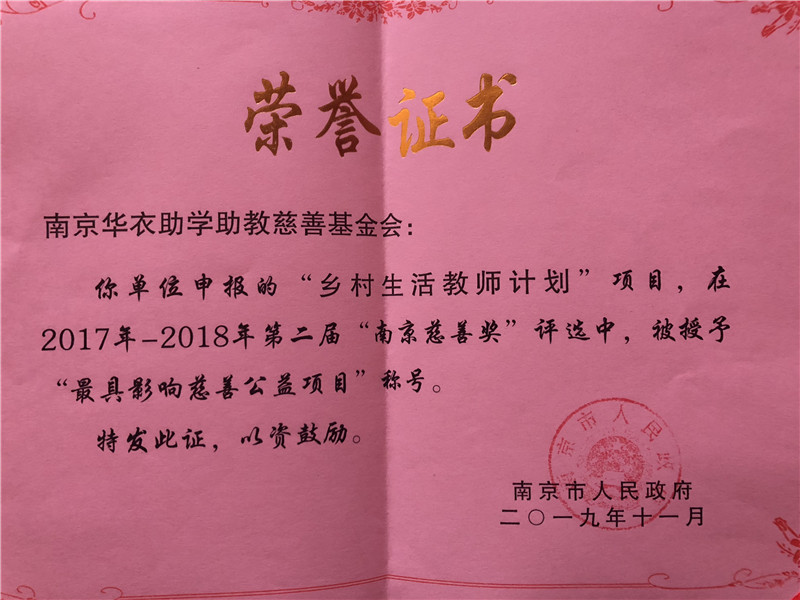 荣誉证书
南京华衣助学助教慈善基金会：
你单位申报的“乡村生活教师计划”项目，在
2017年-2018年第二届“南京慈善奖”评选中，被授予
“最具影响慈善公益项目”称号。
特发此证，以资鼓励。
南京市人民政府
二〇一九年十一月